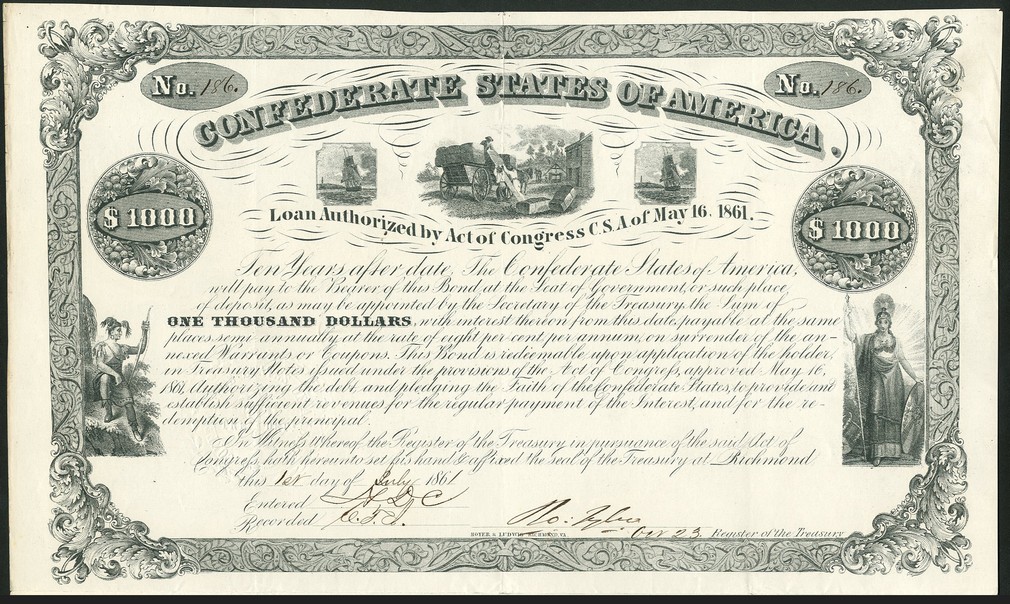 No. 186. No. 186.
CONFEDERATE STATES OF AMERICA.
$1000 $1000
Loan Authorized by Act of Congress C.S.A. of May 16. 1861.
Ten Years after date, The Confederate States of America,
will pay to the Bearer of this Bond at the Seat of Government, or such place
of deposit, as may be appointed by the Secretary of the Treasury, the Sum of
ONE THOUSAND DOLLARS, with interest thereon from this date, payable at the same
places, semi annually at the rate of eight per cent per annum, on surrender of the an-
nexed Warrants or Coupons. This Bond is redeemable upon application of the holder,
in Treasury Notes issued under the provisions of the Act of Congress, approved May 16,
1861, Authorizing the debt, and pledging the Faith of the Confederate States, to provide and
establish sufficient revenues for the regular payment of the Interest, and for the re-
demption of the principal.
In Witness whereof the Register of the Treasury in pursuance of the said Act of
Congress, hath hereunto set his hand & affixed the seal of the Treasury at Richmond
this 1st day of July 1861
Entered
Recorded C.T.J.
Ro: Tyler
Oct 23. Register of the Treasury
HOYER & LUDWIG RICHMOND, VA.